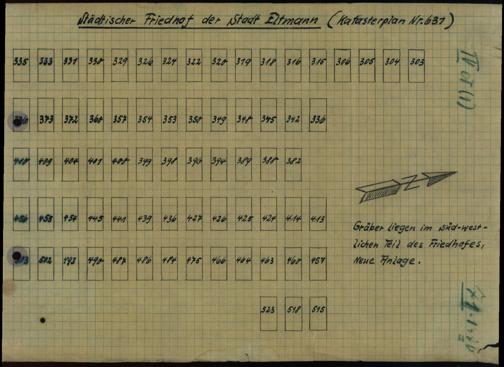 Städtischer Friedhof der Stadt Eltmann (Katasterplan Nr. 631)
335 333 331 330 329 326 324 322 320 319 318 316 315 306 305 304 303
373 372 360 357 354 353 350 349 348 345 342 336
409 404 401 400 399 398 396 394 389 388 382
456 455 454 445 441 439 436 427 426 425 421 414 413
502 493 490 487 486 484 475 466 464 463 460 457
N
Gräber liegen im süd-west-
lichen Teil des Friedhofes,
Neue Anlage.
523 518 515